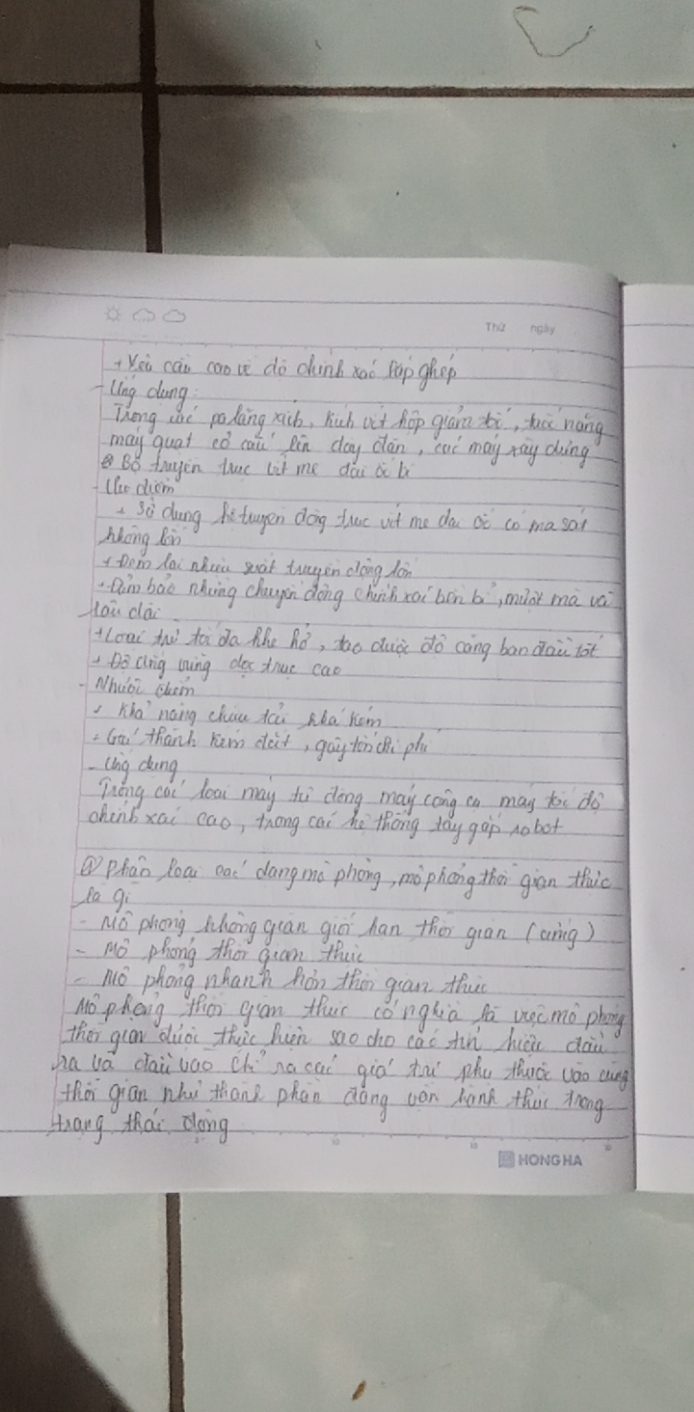 Thứ ngày
+ Yêu cầu cao về độ chính xác lắp ghép
- Ứng dụng:
Trong các palăng xích, kích vít hộp giảm tốc, trục nâng
máy quạt cơ cấu lên dây đàn, các máy xây dựng
Bộ truyền trục vít me đai ốc bi
- Ưu điểm
+ Sử dụng hệ truyền động trục vít me đai ốc có ma sát
không lớn
+ Đem lại hiệu suất truyền động lớn
+ Đảm bảo những chuyển động chính xác bền bỉ, mượt mà và
lâu dài
+ Loại trừ tối đa khe hở, tạo được độ căng ban đầu tốt
+ Độ cứng vững dọc trục cao
- Nhược điểm
+ Khả năng chịu tải khá kém
+ Giá thành đắt, gây tốn chi phí
- Ứng dụng
Trong các loại máy tự động máy công cụ máy tốc độ
chính xác cao, trong các hệ thống tay gắp robot
④ Phân loại các dạng mô phỏng, mô phỏng thời gian thực
là gì
- Mô phỏng không gian giới hạn thời gian (cứng)
- Mô phỏng thời gian thực
- Mô phỏng nhanh hơn thời gian thực
Mô phỏng thời gian thực có nghĩa là việc mô phỏng
thời gian được thực hiện sao cho các tín hiệu đầu
ra và đầu vào chỉ ra các giá trị phụ thuộc vào cùng
thời gian như thành phần đang vận hành thực trong
trạng thái động
HONG HA